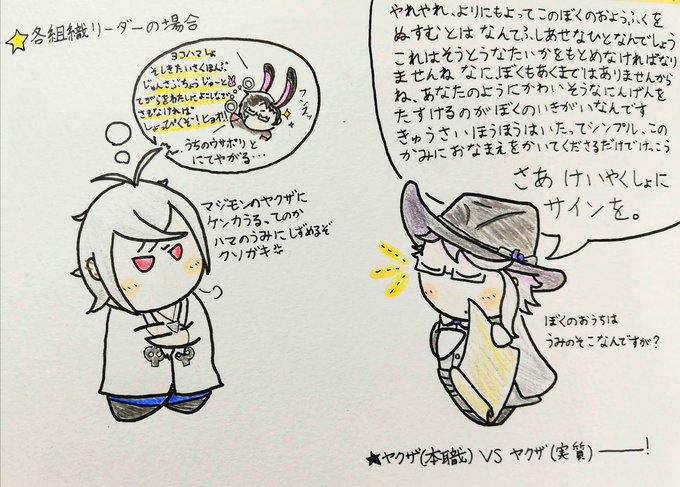 各組織リーダーの場合
ヨコハマしょ
そしきたいさくほんぶ
じゅんさぶちょう じゅーと
てがらをわたしに よこしなさい
さもなければ
しょっぴくぞ!ピョォ!!
フンスッ
…うちのウサポリと
にてやがる…
マジモンのヤクザに
ケンカうるってのか
ハマのうみにしずめるぞ
クソガキ
やれやれ、よりにもよってこのぼくのおようふくを
ぬすむとは なんてふしあせなひとなんでしょう
これはそうとうなたいかをもとめなければなり
ませんね なに、ぼくもあくまではありませんから
ね、あなたのようにかわいそうなにんげんを
たすけるのがぼくのいきがいなんです
きゅうさいほうほうはいたってシンプル、この
かみにおなまえをかいてくださるだけでけっこう
さあ けいやくしょに
サインを。
ぼくのおうちは
うみのそこなんですが?
★ヤクザ(本職) VS ヤクザ(実質)――!